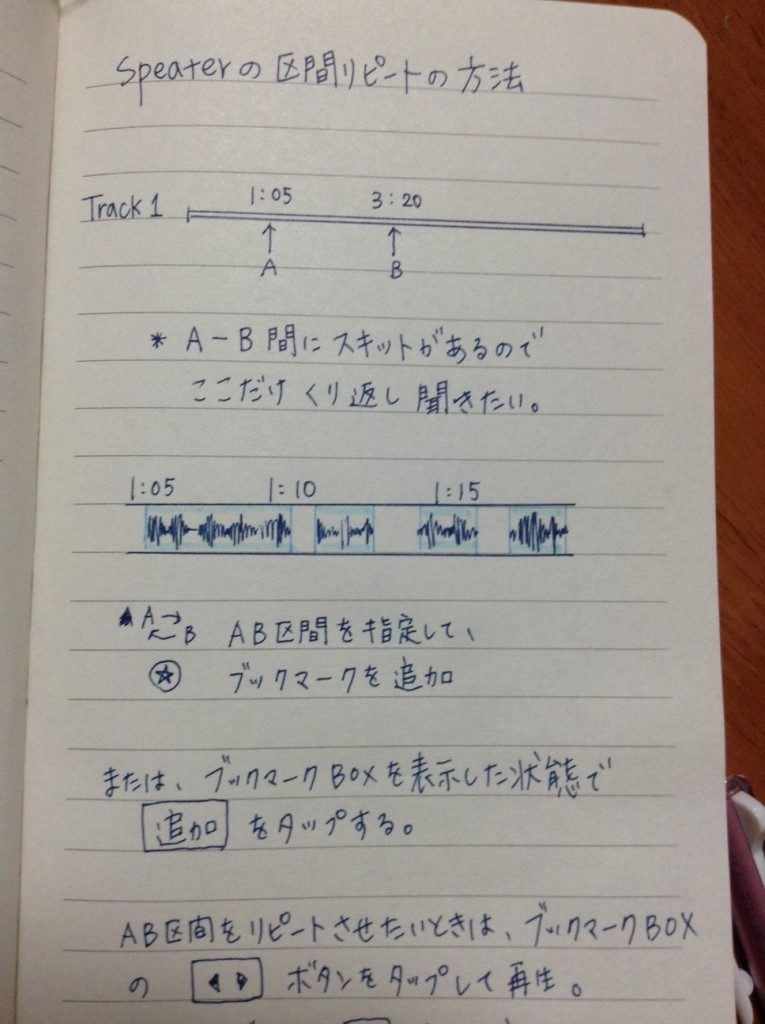 Speaterの区間リピートの方法
1:05 3:20
Track 1
A B
* A-B間にスキットがあるので
ここだけくり返し聞きたい。
1:05 1:10 1:15
A B AB区間を指定して、
ブックマークを追加
または、ブックマークBOXを表示した状態で
追加 をタップする。
AB区間をリピートさせたいときは、ブックマークBOX
の ボタンをタップして再生。